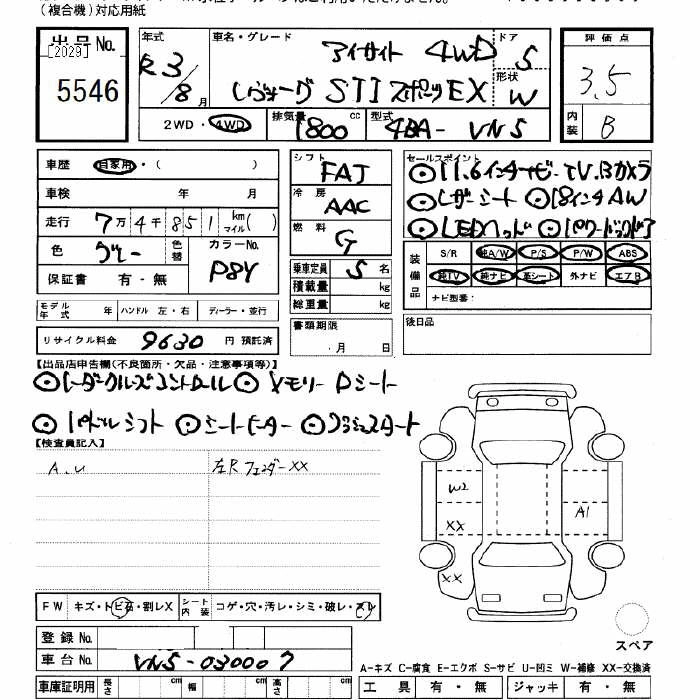 (複合機)対応用紙
出品No. 年式 車名・グレード ドア 評価点
[2029] アイサイト 4WD 5
5546 R3/8月 レヴォーグ STI スポーツEX 形状 W 3.5
2WD・4WD 排気量 1800 cc 型式 4BA- VN5 内装 B
車歴 自家用・( ) シフト FAT セールスポイント
車検 年 月 冷房 AAC ⊙11.6インチナビ-TV.Bカメラ
走行 7万4千851 km マイル( ) 燃料 G ⊙レザーシート ⊙18インチAW
色 グレー 色替 カラーNo. P8Y ⊙LEDヘッド ⊙パワーバックドア
保証書 有・無 乗車定員 5名 装備品 S/R 純A/W P/S P/W ABS
積載量 kg 純TV 純ナビ 革シート 外ナビ エアB
モデル年式 年 ハンドル 左・右 ディーラー・並行 総重量 kg ナビ型番:
リサイクル料金 9630 円 預託済 書類期限 ・月 日 後日品
【出品店申告欄(不良箇所・欠品・注意事項等)】
⊙レーダークルーズコントロール ⊙メモリーPシート
⊙パドルシフト ⊙シートヒーター ⊙プッシュスタート
【検査員記入】
A.U 左Rフェンダーxx
W2
XX A1
XX
FW キズ・トビ石・割レX シート内装 コゲ・穴・汚レ・シミ・破レ・スレ
スペア
登録No.
車台No. VN5-030007
A-キズ C-腐食 E-エクボ S-サビ U-凹ミ W-補修 XX-交換済
車庫証明用 長さ cm 幅 cm 高さ cm 工具 有・無 ジャッキ 有・無